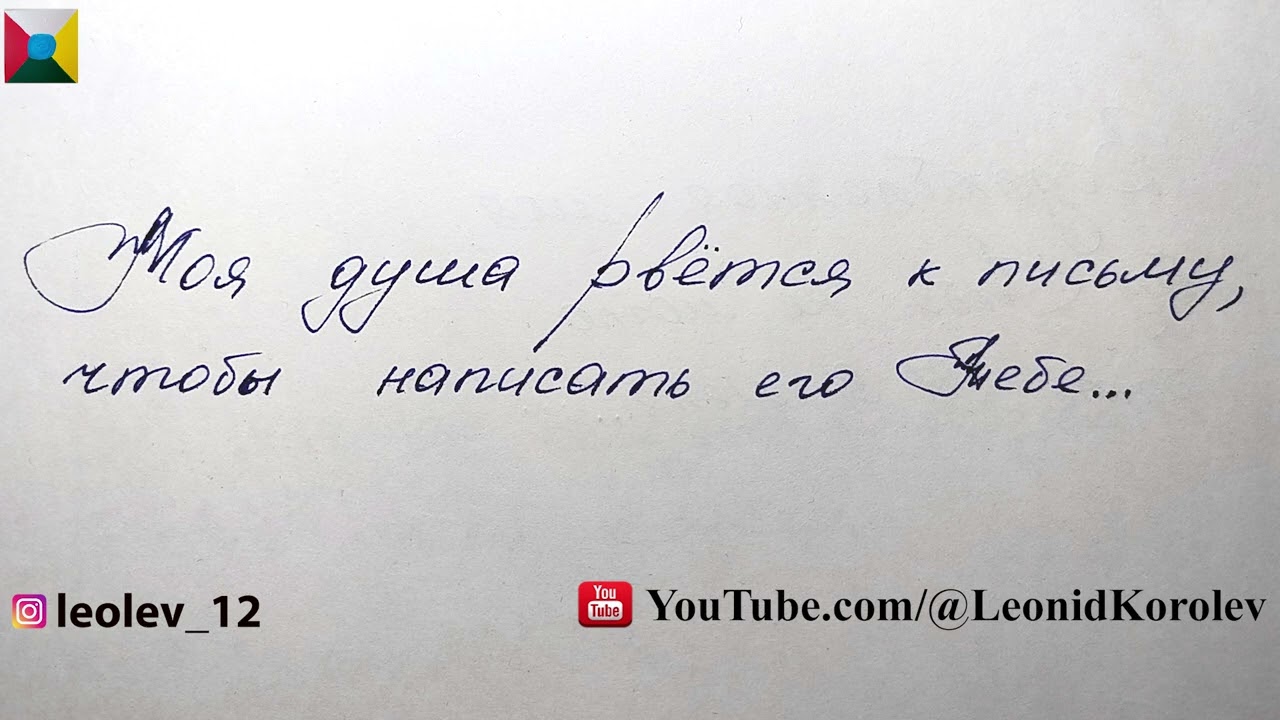 Моя душа рвётся к письму,
чтобы написать его Тебе...
leolev_12
You Tube YouTube.com/@LeonidKorolev